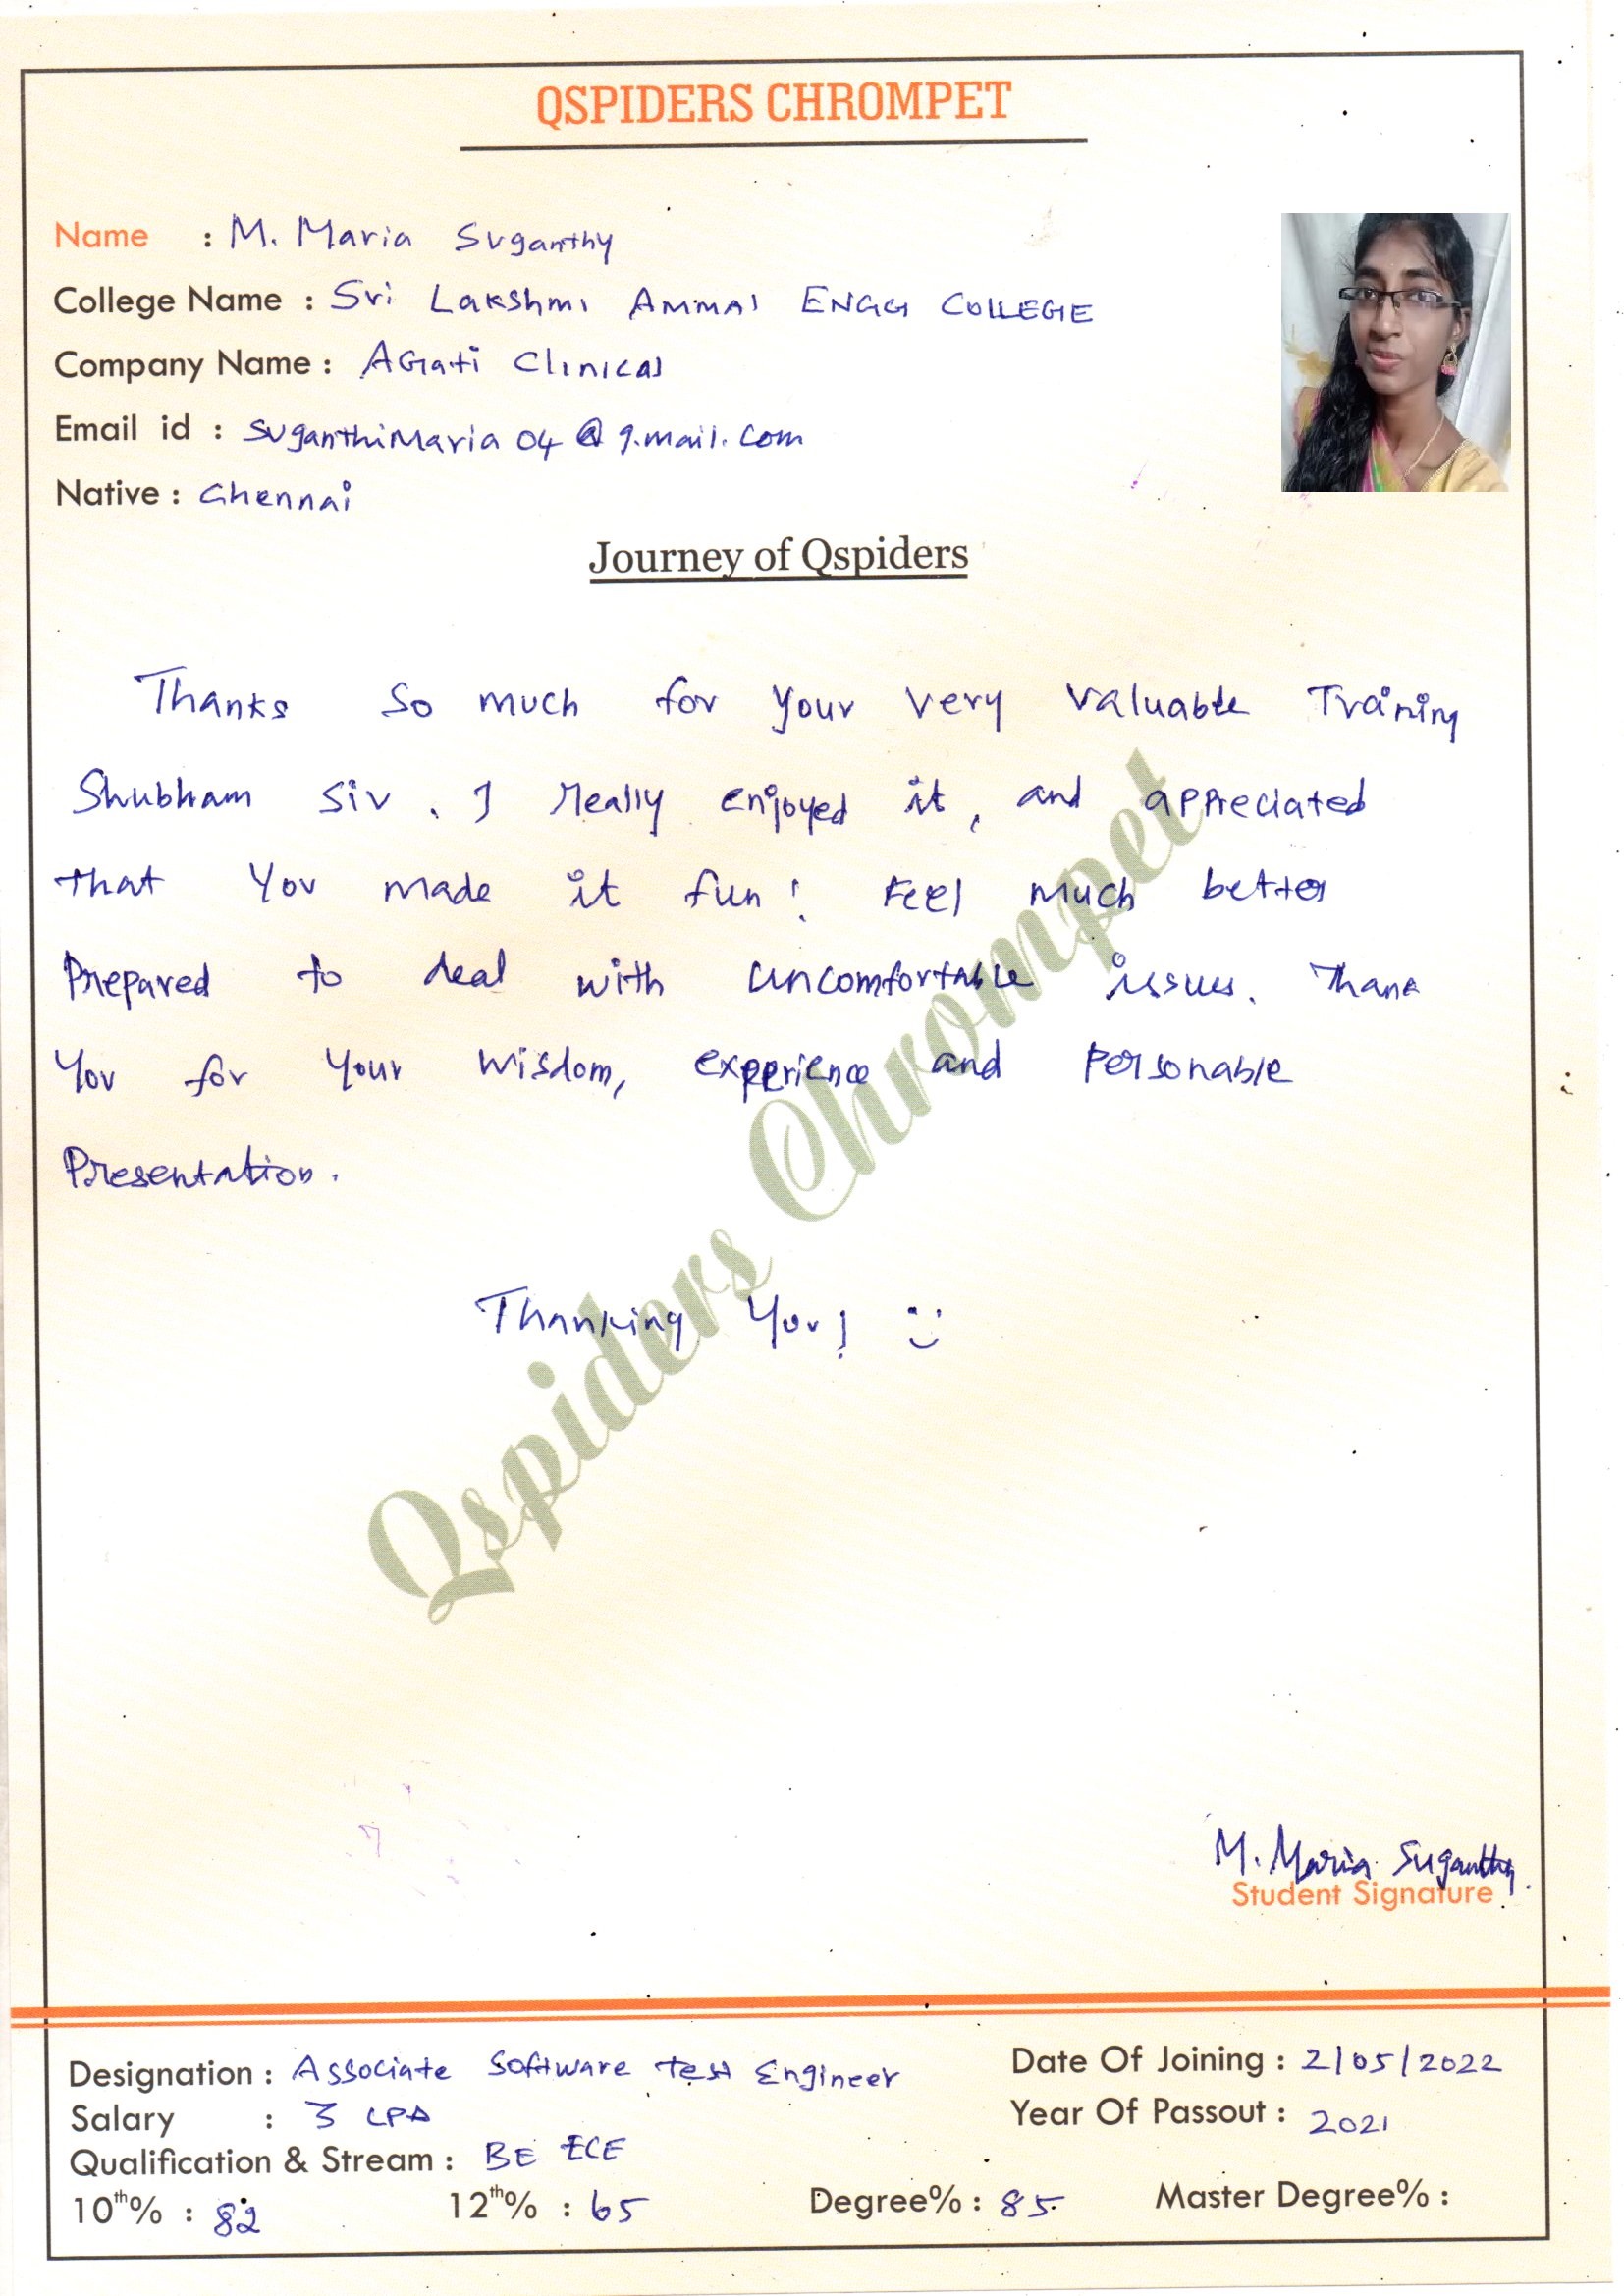 QSPIDERS CHROMPET
Name : M. Maria Suganthy
College Name : Sri Lakshmi Ammal ENGG COLLEGE
Company Name : AGati Clinical
Email id : suganthiMaria 04 @ g.mail.com
Native : Chennai
Journey of Qspiders
Thanks so much for your very valuable Training
Shubham sir. I really enjoyed it, and appreciated
that you made it fun! Feel much better
Prepared to deal with uncomfortable issues. Thank
You for your wisdom, experience and Personable
Presentation.
Thanking You! :)
Qspiders Chrompet
M. Maria Suganthy.
Student Signature
Designation : Associate Software test Engineer
Date Of Joining : 2/05/2022
Salary : 3 LPA
Year Of Passout : 2021
Qualification & Stream : BE ECE
10th% : 82 12th% : 65 Degree% : 85. Master Degree% :